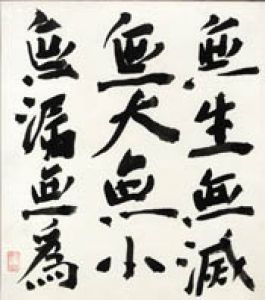 無生無滅
無大無小
無漏無為